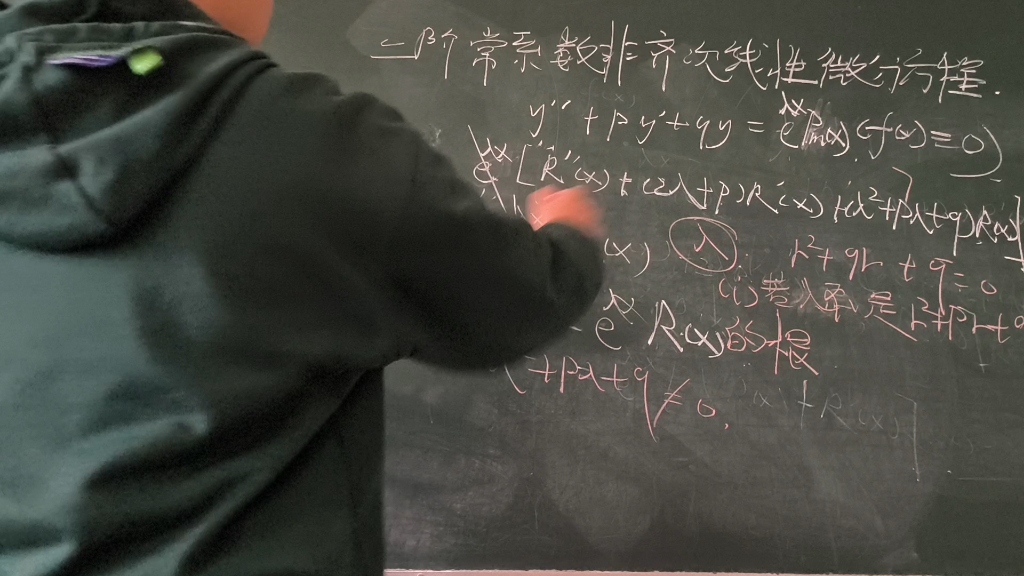 二阶常系数非齐次线性微分方程.
y'' + py' + qy = e^{λx}P_m(x) (f(x)≡0)
e^{λx}[R''(x) + (2λ+p)R'(x) + (λ²+pλ+q)R(x)]
(x) λ r²+qr+q=0
(i)若λ不是r²+pr+q
e^{λx} R(x)的根
+pλ+q≠0.
+R(x)]